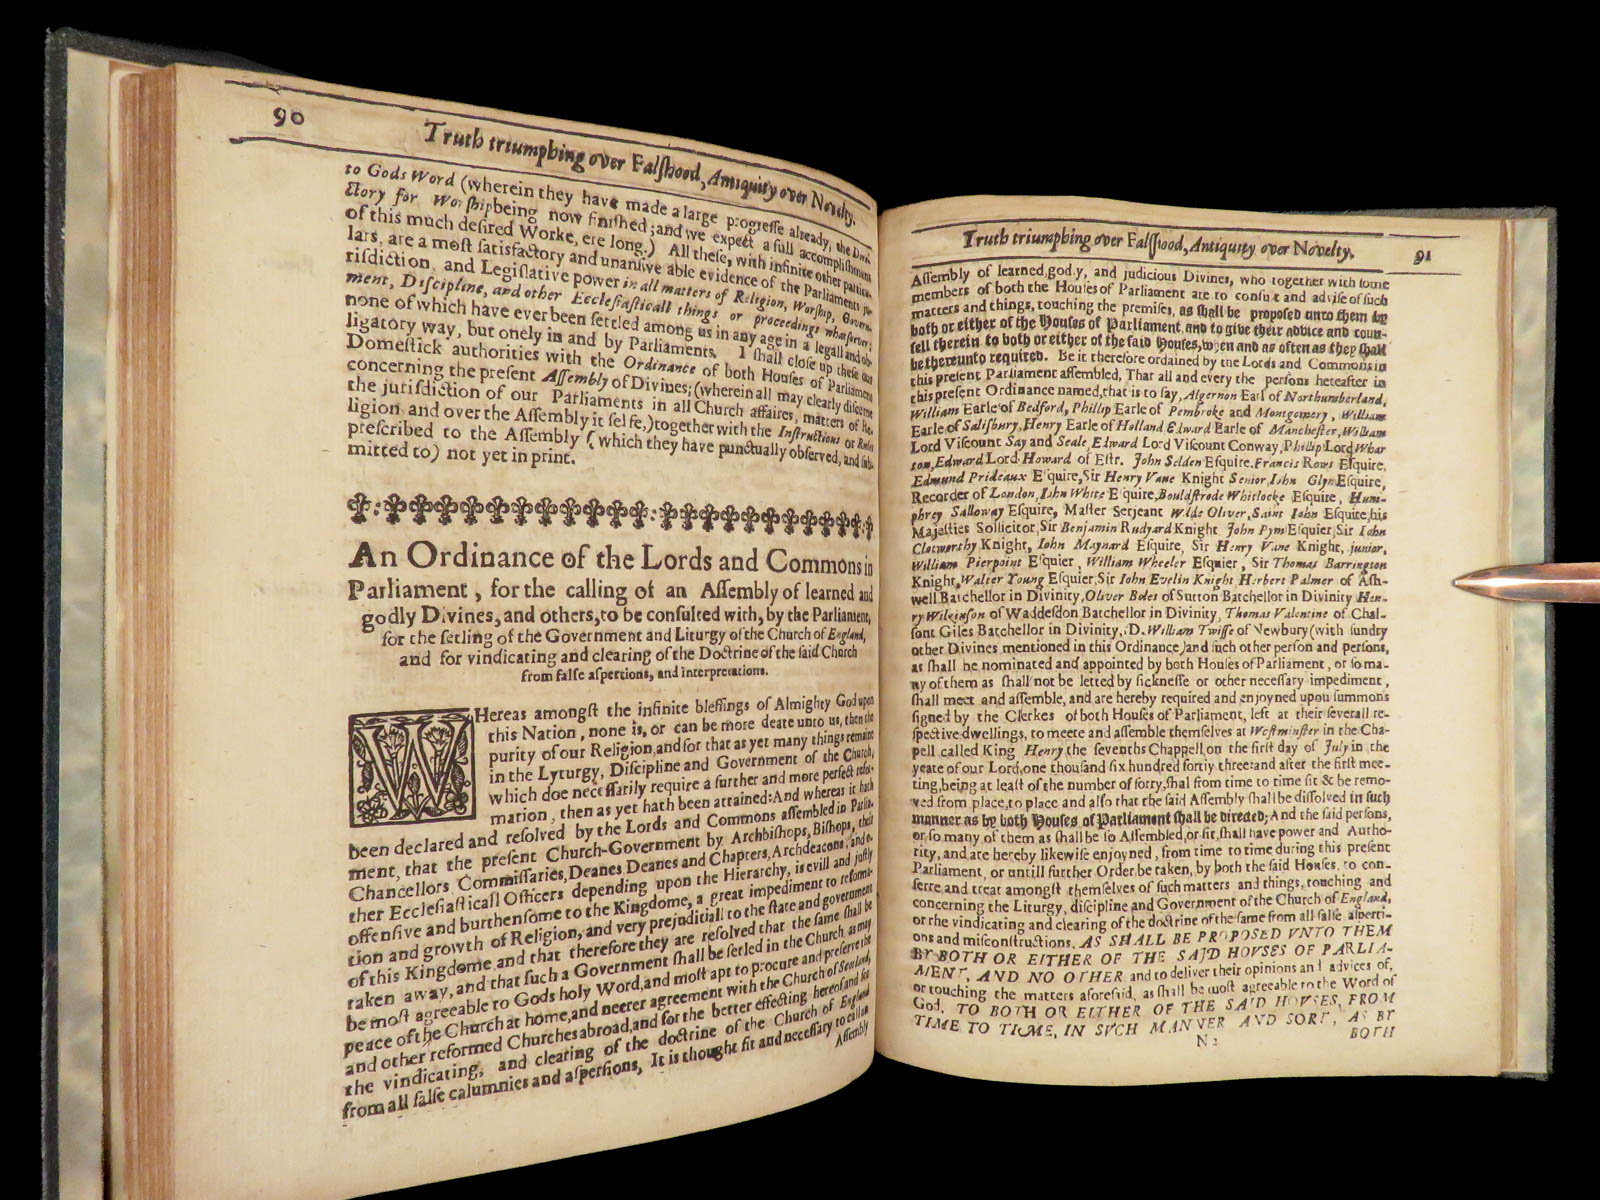 90
Truth triumphing over Falſhood, Antiquity over Novelty.
to Gods Word (wherein they have made a large progreſſe already, the Dire-
ctory for Worſhip being now finiſhed; and we expect a full accompliſhment
of this much deſired Worke, ere long.) All theſe, with infinite other particu-
lars, are a moſt ſatisfactory and unanſwe able evidence of the Parliaments ju-
riſdiction, and Legiſlative power in all matters of Religion, Worſhip, Govern-
ment, Diſcipline, and other Eccleſiaſticall things or proceedings whatſoever;
none of which have ever been ſettled among us in any age in a legall and ob-
ligatory way, but onely in and by Parliaments. I ſhall cloſe up theſe our
Domeſtick authorities with the Ordinance of both Houſes of Parliament
concerning the preſent Aſſembly of Divines; (wherein all may clearly diſcerne
the juriſdiction of our Parliaments in all Church affaires, matters of Re-
ligion, and over the Aſſembly it ſelfe,) together with the Inſtructions or Rules
preſcribed to the Aſſembly (which they have punctually obſerved, and ſub-
mitted to) not yet in print.
An Ordinance of the Lords and Commons in
Parliament, for the calling of an Aſſembly of learned and
godly Divines, and others, to be conſulted with, by the Parliament,
for the ſetling of the Government and Liturgy of the Church of England,
and for vindicating and clearing of the Doctrine of the ſaid Church
from falſe aſperſions, and interpretations.
WHereas amongſt the infinite bleſſings of Almighty God upon
this Nation, none is, or can be more deare unto us, then the
purity of our Religion, and for that as yet many things remaine
in the Lyturgy, Diſcipline and Government of the Church,
which doe neceſſarily require a further and more perfect refor-
mation, then as yet hath been attained: And whereas it hath
been declared and reſolved by the Lords and Commons aſſembled in Parlia-
ment, that the preſent Church-Government by Archbiſhops, Biſhops, their
Chancellors, Commiſſaries, Deanes, Deanes and Chapters, Archdeacons, and o-
ther Eccleſiaſticall Officers depending upon the Hierarchy, is evill and juſtly
offenſive and burthenſome to the Kingdome, a great impediment to reforma-
tion and growth of Religion, and very prejudiciall to the ſtate and government
of this Kingdome, and that therefore they are reſolved that the ſame ſhall be
taken away, and that ſuch a Government ſhall be ſetled in the Church, as may
be moſt agreeable to Gods holy Word, and moſt apt to procure and preſerve the
peace of the Church at home, and neerer agreement with the Church of Scotland,
and other reformed Churches abroad, and for the better effecting hereof and for
the vindicating, and clearing of the doctrine of the Church of England
from all falſe calumnies and aſperſions, It is thought fit and neceſſary to call an
Aſſembly
Truth triumphing over Falſhood, Antiquity over Novelty. 91
Aſſembly of learned, godly, and judicious Divines, who together with ſome
members of both the Houſes of Parliament are to conſult and adviſe of ſuch
matters and things, touching the premiſes, as ſhall be propoſed unto them by
both or either of the Houſes of Parliament, and to give their advice and coun-
ſell therein to both or either of the ſaid Houſes, when and as often as they ſhall
be thereunto required. Be it therefore ordained by the Lords and Commons in
this preſent Parliament aſſembled, That all and every the perſons hereafter in
this preſent Ordinance named, that is to ſay, Algernon Earl of Northumberland,
William Earle of Bedford, Phillip Earle of Pembroke and Montgomery, William
Earle of Saliſbury, Henry Earle of Holland, Edward Earle of Mancheſter, William
Lord Viſcount Say and Seale, Edward Lord Viſcount Conway, Phillip Lord Whar
ton, Edward Lord Howard of Eſtr. John Selden Eſquire, Francis Rows Eſquire,
Edmund Prideaux Eſquire, Sir Henry Vane Knight Senior, Iohn Glyn Eſquire,
Recorder of London, Iohn White Eſquire, Bouldſtrode Whitlocke Eſquire, Hum-
phrey Salloway Eſquire, Maſter Serjeant Wilde, Oliver, Saint Iohn Eſquire, his
Majeſties Sollicitor, Sir Benjamin Rudyard Knight, John Pym Eſquier, Sir Iohn
Clotworthy Knight, Iohn Maynard Eſquire, Sir Henry Vane Knight, junior,
William Pierpoint Eſquier, William Wheeler Eſquier, Sir Thomas Barrington
Knight, Walter Young Eſquier, Sir Iohn Evelin Knight, Herbert Palmer of Aſh-
well Batchellor in Divinity, Oliver Boles of Sutton Batchellor in Divinity, Hen-
ry Wilkinſon of Waddeſdon Batchellor in Divinity, Thomas Valentine of Chal-
font Giles Batchellor in Divinity, D. William Twiſſe of Newbury (with ſundry
other Divines mentioned in this Ordinance) and ſuch other perſon and perſons,
as ſhall be nominated and appointed by both Houſes of Parliament, or ſo ma-
ny of them as ſhall not be letted by ſickneſſe or other neceſſary impediment,
ſhall meet and aſſemble, and are hereby required and enjoyned upon ſummons
ſigned by the Clerkes of both Houſes of Parliament, left at their ſeverall re-
ſpective dwellings, to meete and aſſemble themſelves at Weſtminſter in the Cha-
pell called King Henry the ſevenths Chappell, on the firſt day of July in the
yeare of our Lord, one thouſand ſix hundred forty three: and after the firſt mee-
ting, being at leaſt of the number of forty, ſhal from time to time ſit & be remo-
ved from place, to place and alſo that the ſaid Aſſembly ſhall be diſſolved in ſuch
manner as by both Houſes of Parliament ſhall be directed; And the ſaid perſons,
or ſo many of them as ſhall be ſo Aſſembled, or ſit, ſhall have power and Autho-
rity, and are hereby likewiſe enjoyned, from time to time during this preſent
Parliament, or untill further Order be taken, by both the ſaid Houſes, to con-
ferre and treat amongſt themſelves of ſuch matters and things, touching and
concerning the Liturgy, diſcipline and Government of the Church of England,
or the vindicating and clearing of the doctrine of the ſame from all falſe aſperti-
ons and miſconſtructions, AS SHALL BE PROPOSED VNTO THEM
BY BOTH OR EITHER OF THE SAID HOVSES OF PARLIA-
MENT, AND NO OTHER and to deliver their opinions and advices of,
or touching the matters aforeſaid, as ſhall be moſt agreeable to the Word of
God, TO BOTH OR EITHER OF THE SAID HOVSES, FROM
TIME TO TIME, IN SVCH MANNER AND SORT, AS BY
N 2 BOTH